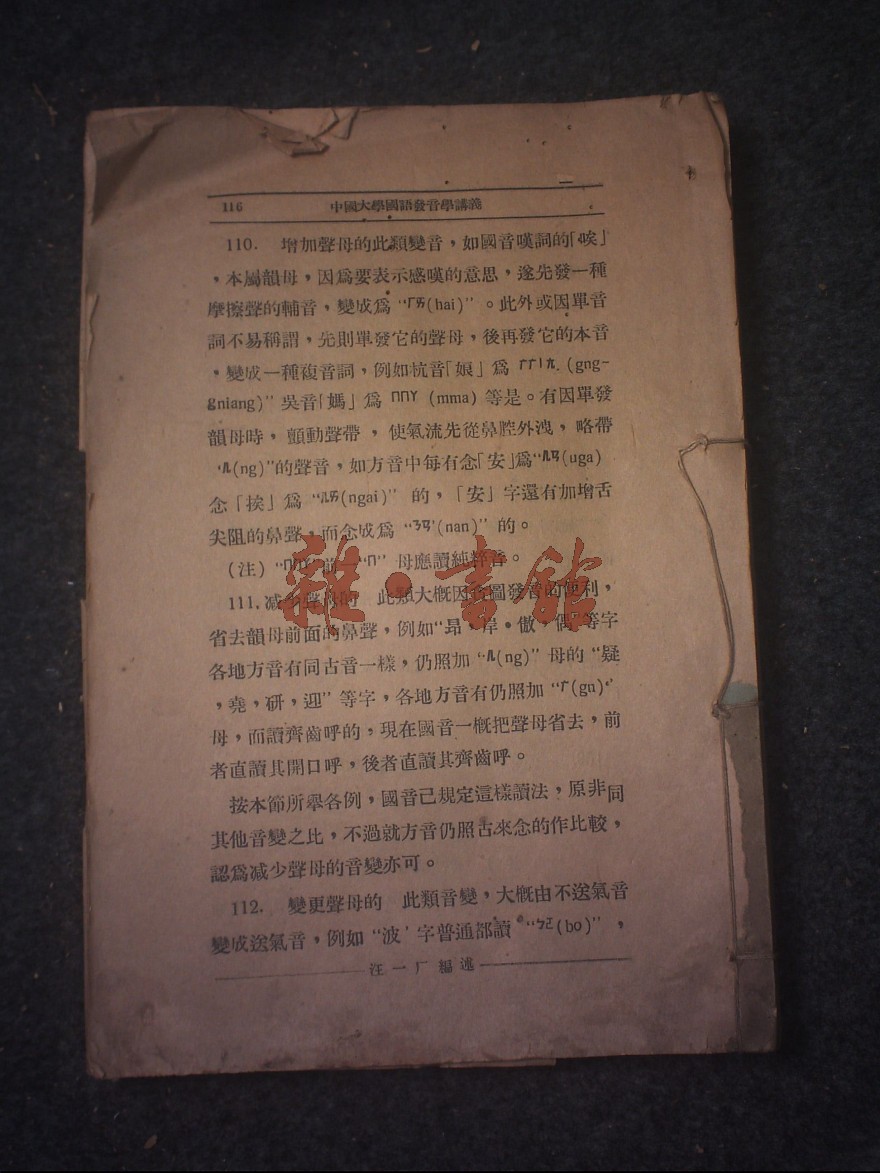 116 中國大學國語發音學講義
110. 增加聲母的此類變音,如國音嘆詞的「唉」
,本屬韻母,因爲要表示感嘆的意思,遂先發一種
摩擦聲的輔音,變成爲“ㄏㄞ(hai)”。此外或因單音
詞不易稱謂,先則單發它的聲母,後再發它的本音
,變成一種複音詞,例如杭音「娘」爲 ㄏㄏㄧㄤ.(gng-
gniang)”吳音「媽」爲 ㄇㄇㄚ (mma) 等是。有因單發
韻母時,顫動聲帶,使氣流先從鼻腔外洩,略帶
‘ㄫ(ng)”的聲音,如方音中每有念「安」爲“ㄫㄢ(uga)
念「挨」爲 “ㄫㄞ(ngai)” 的,「安」字還有加增舌
尖阻的鼻聲,而念成爲 “ㄋㄢ'(nan)” 的。
(注) “ㄇㄇㄚ 前一“ㄇ” 母應讀純粹音。
111.減少聲母的 此類大概因貪圖發音的便利,
省去韻母前面的鼻聲,例如“昂,岸,傲,偶”等字
各地方音有同古音一樣,仍照加 “ㄫ(ng)” 母的 “疑
,堯,研,迎” 等字,各地方音有仍照加 “ㄬ(gn)“
母,而讀齊齒呼的,現在國音一概把聲母省去,前
者直讀其開口呼,後者直讀其齊齒呼。
按本節所舉各例,國音已規定這樣讀法,原非同
其他音變之比,不過就方音仍照古來念的作比較,
認爲減少聲母的音變亦可。
112. 變更聲母的 此類音變,大概由不送氣音
變成送氣音,例如 “波’字普通都讀 “ㄅㄛ(bo)”,
汪一厂編述
雜·書館